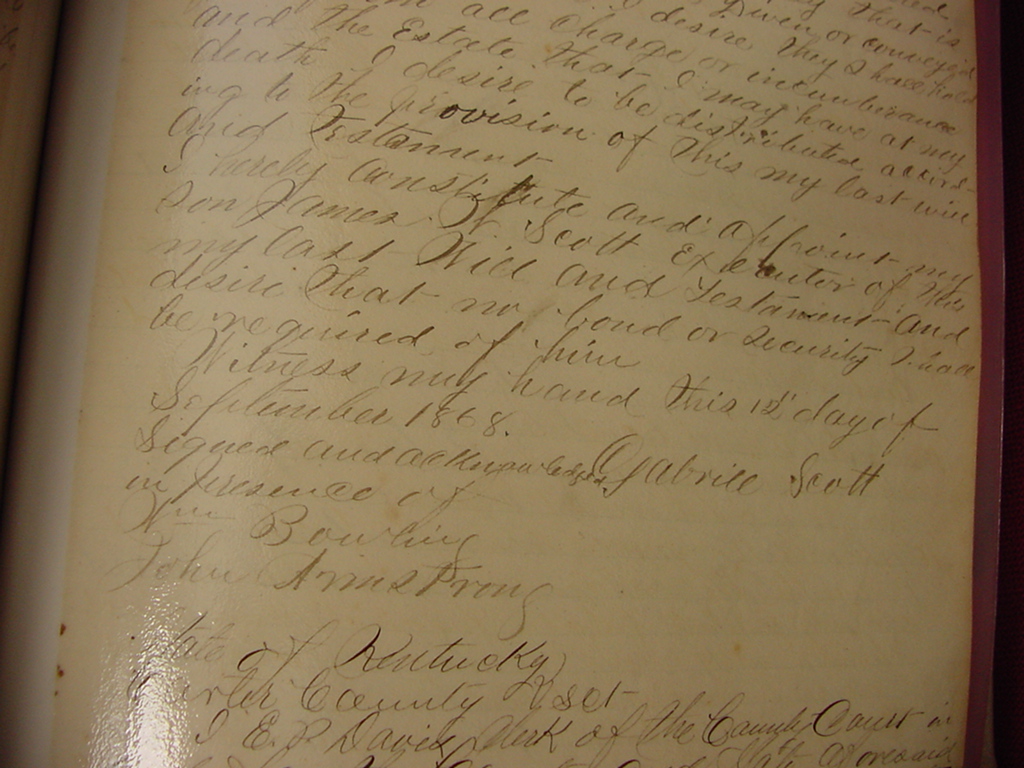 that is
all charge or incumbrance
and the Estate that I may have at my
death I desire to be distributed accord-
ing to the provision of this my last will
and Testament
I hereby constitute and appoint my
son James Scott Executor of this
my last Will and Testament and
desire that no bond or security shall
be required of him
Witness my hand this 12 day of
September 1868.
Signed and acknowledged Gabriel Scott
in presence of
Wm Bowling
John Armstrong
State of Kentucky
Carter County Sct
I E. P. Davis Clerk of the County Court in
aforesaid